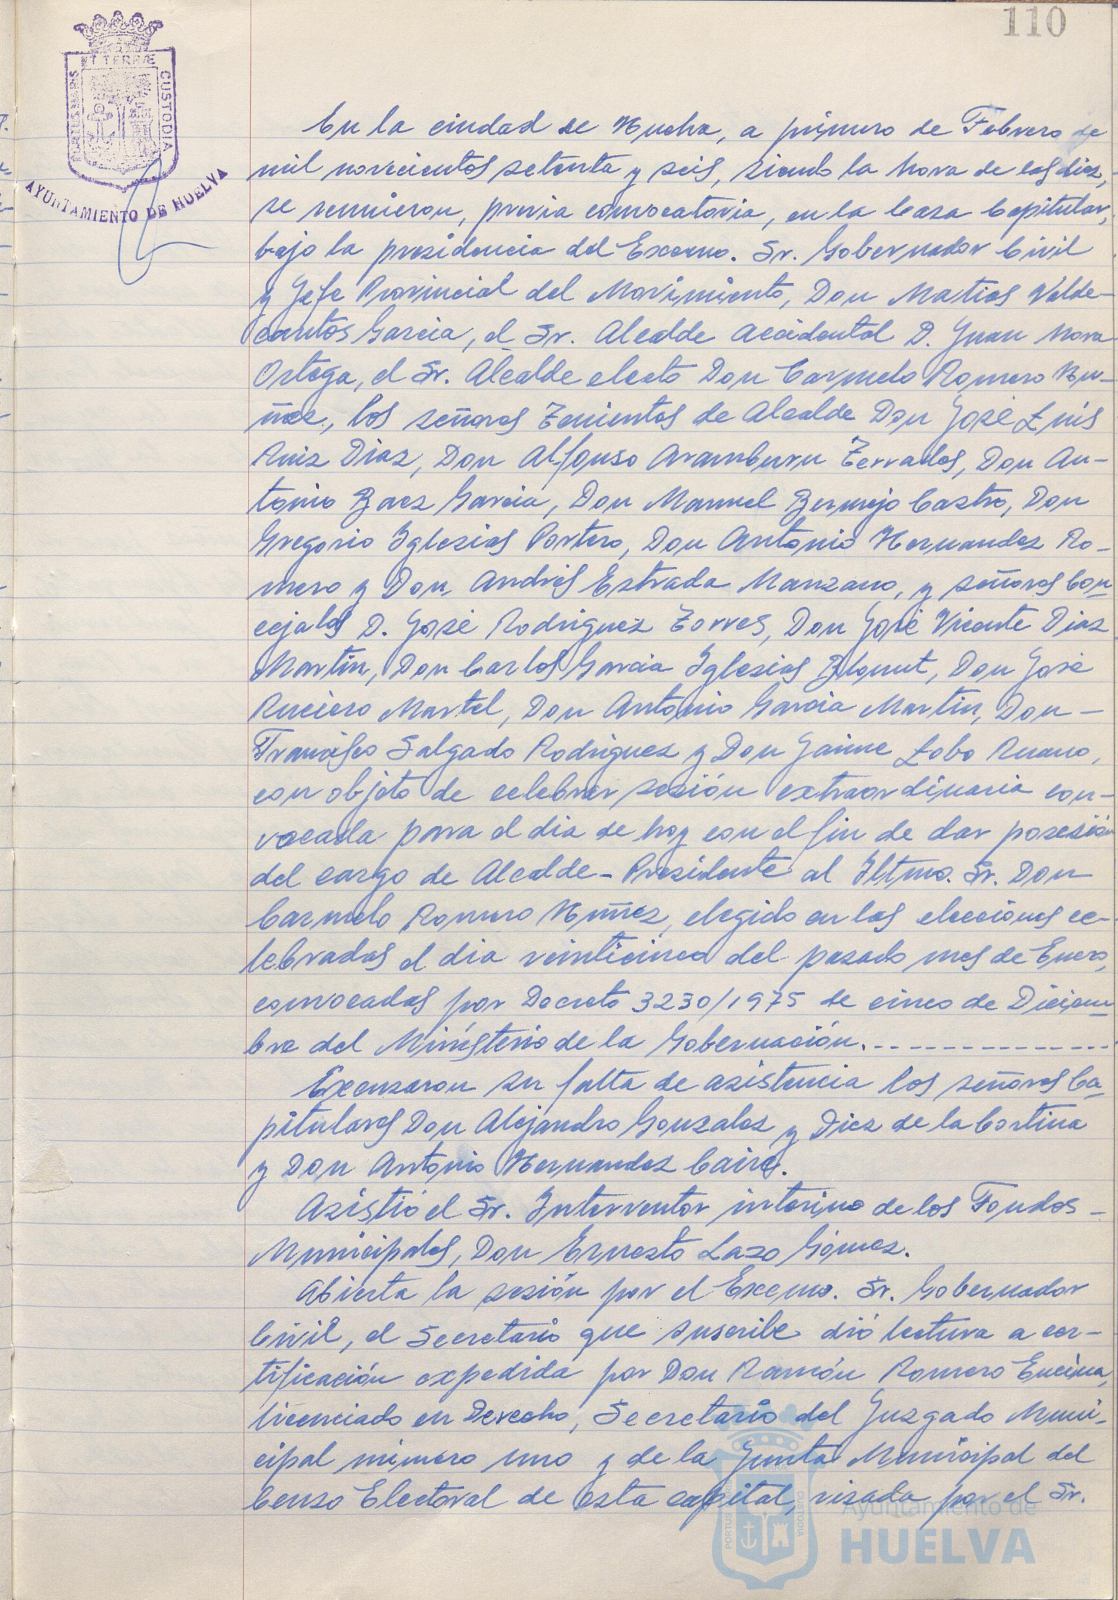 110
PORTUS MARIS
ET TERRÆ
CUSTODIA
AYUNTAMIENTO DE HUELVA
En la ciudad de Huelva, a primero de Febrero de
mil novecientos setenta y seis, siendo la hora de las diez,
se reunieron, previa convocatoria, en la Casa Capitular,
bajo la presidencia del Excmo. Sr. Gobernador Civil
y Jefe Provincial del Movimiento, Don Matias Valde-
cantos Garcia, el Sr. Alcalde Accidental D. Juan Mora
Ortega, el Sr. Alcalde electo Don Carmelo Romero Nu-
ñez, los señores Tenientes de Alcalde Don José Luis
Ruiz Diaz, Don Alfonso Aramburu Terrados, Don An-
tonio Baez Garcia, Don Manuel Bermejo Castro, Don
Gregorio Iglesias Portero, Don Antonio Hernandez Ro-
mero y Don Andrés Estrada Manzano, y señores Con
cejales D. José Rodriguez Torres, Don José Vicente Diaz
Martin, Don Carlos Garcia Iglesias Blount, Don José
Ruciero Martel, Don Antonio Garcia Martin, Don-
Francisco Salgado Rodriguez y Don Jaime Lobo Ruano,
con objeto de celebrar sesión extraordinaria con-
vocada para el dia de hoy con el fin de dar posesión
del cargo de Alcalde-Presidente al Iltmo. Sr. Don
Carmelo Romero Nuñez, elegido en las elecciones ce-
lebradas el dia veinticinco del pasado mes de Enero,
convocadas por Decreto 3230/1975 de cinco de Diciem
bre del Ministerio de la Gobernación.--------------
Excusaron su falta de asistencia los señores Ca
pitulares Don Alejandro Gonzalez y Diez de la Cortina
y Don Antonio Hernandez Caire.
Asistió el Sr. Interventor interino de los Fondos-
Municipales, Don Ernesto Lazo Gómez.
Abierta la sesión por el Excmo. Sr. Gobernador
Civil, el Secretario que suscribe dió lectura a cer-
tificación expedida por Don Ramón Romero Encina,
licenciado en Derecho, Secretario del Juzgado Muni-
cipal número uno y de la Junta Municipal del
Censo Electoral de esta capital, visada por el Sr.
Ayuntamiento de
HUELVA